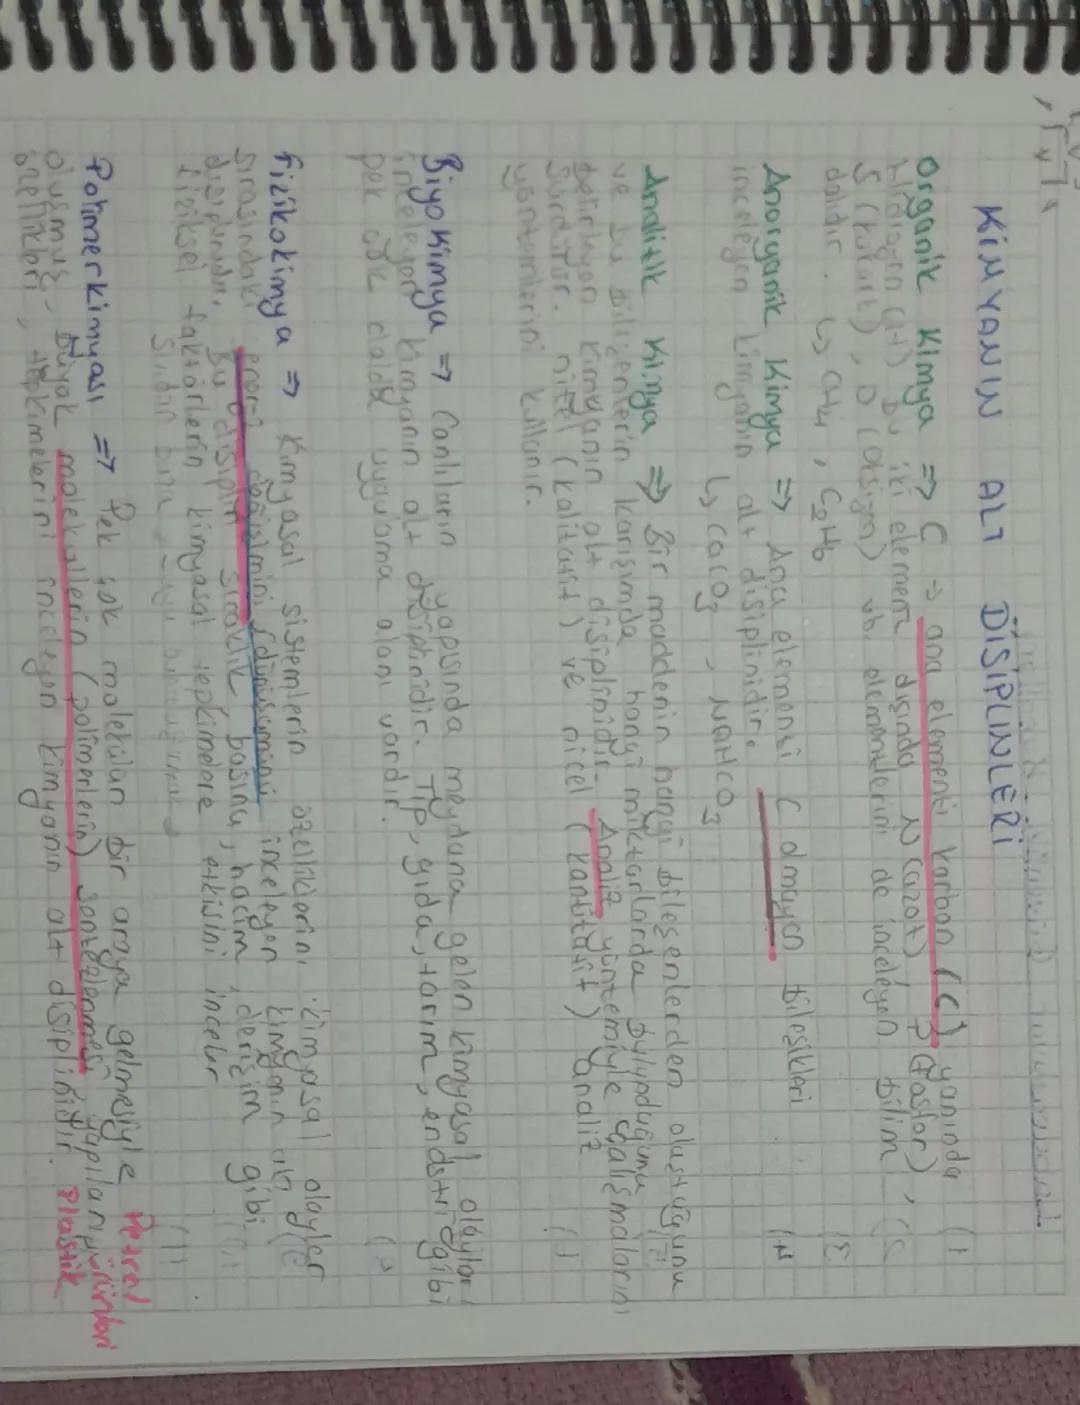 KİMYANIN ALT DİSİPLİNLERİ
Organik Kimya => C → ana elementi karbon (C) yanında
Hidrojen (H) bu iki element dışında N (azot) P (fosfor),
S (kükürt), O (oksijen) vb. elementlerini de inceleyen bilim
dalıdır. ↳ CH4, C2H6
Anorganik Kimya => Ana elementi C olmayan bileşikleri
inceleyen kimyanın alt disiplinidir.
↳ CaCO3, NaHCO3
Analitik Kimya => Bir maddenin hangi bileşenlerden oluştuğunu
ve bu bileşenlerin karışımda hangi miktarlarda bulunduğunu
belirleyen kimyanın alt disiplinidir. Analiz yöntemiyle çalışmalarını
sürdürür. nitel (kalitatif) ve nicel (kantitatif) analiz
yöntemlerini kullanır.
Biyokimya => Canlıların yapısında meydana gelen kimyasal olayları
inceleyen kimyanın alt disiplinidir. Tıp, gıda, tarım, endstri gibi
pek çok alanda uygulama alanı vardır.
fizikokimya => Kimyasal sistemlerin özelliklerini, kimyasal olaylar
sırasındaki enerji değişimini, dönüşümünü inceleyen kimyanın alt
disiplinidir. Bu disiplin sıcaklık, basınç, hacim, derişim gibi
fiziksel faktörlerin kimyasal tepkimelere etkisini inceler
Polimer kimyası => Pek çok molekülün bir araya gelmesiyle
oluşmuş, büyük moleküllerin (polimerlerin) sentezlenmesi, yapıları,
özellikleri, tepkimelerini inceleyen kimyanın alt disiplinidir.
Petrol
ürünleri
Plastik